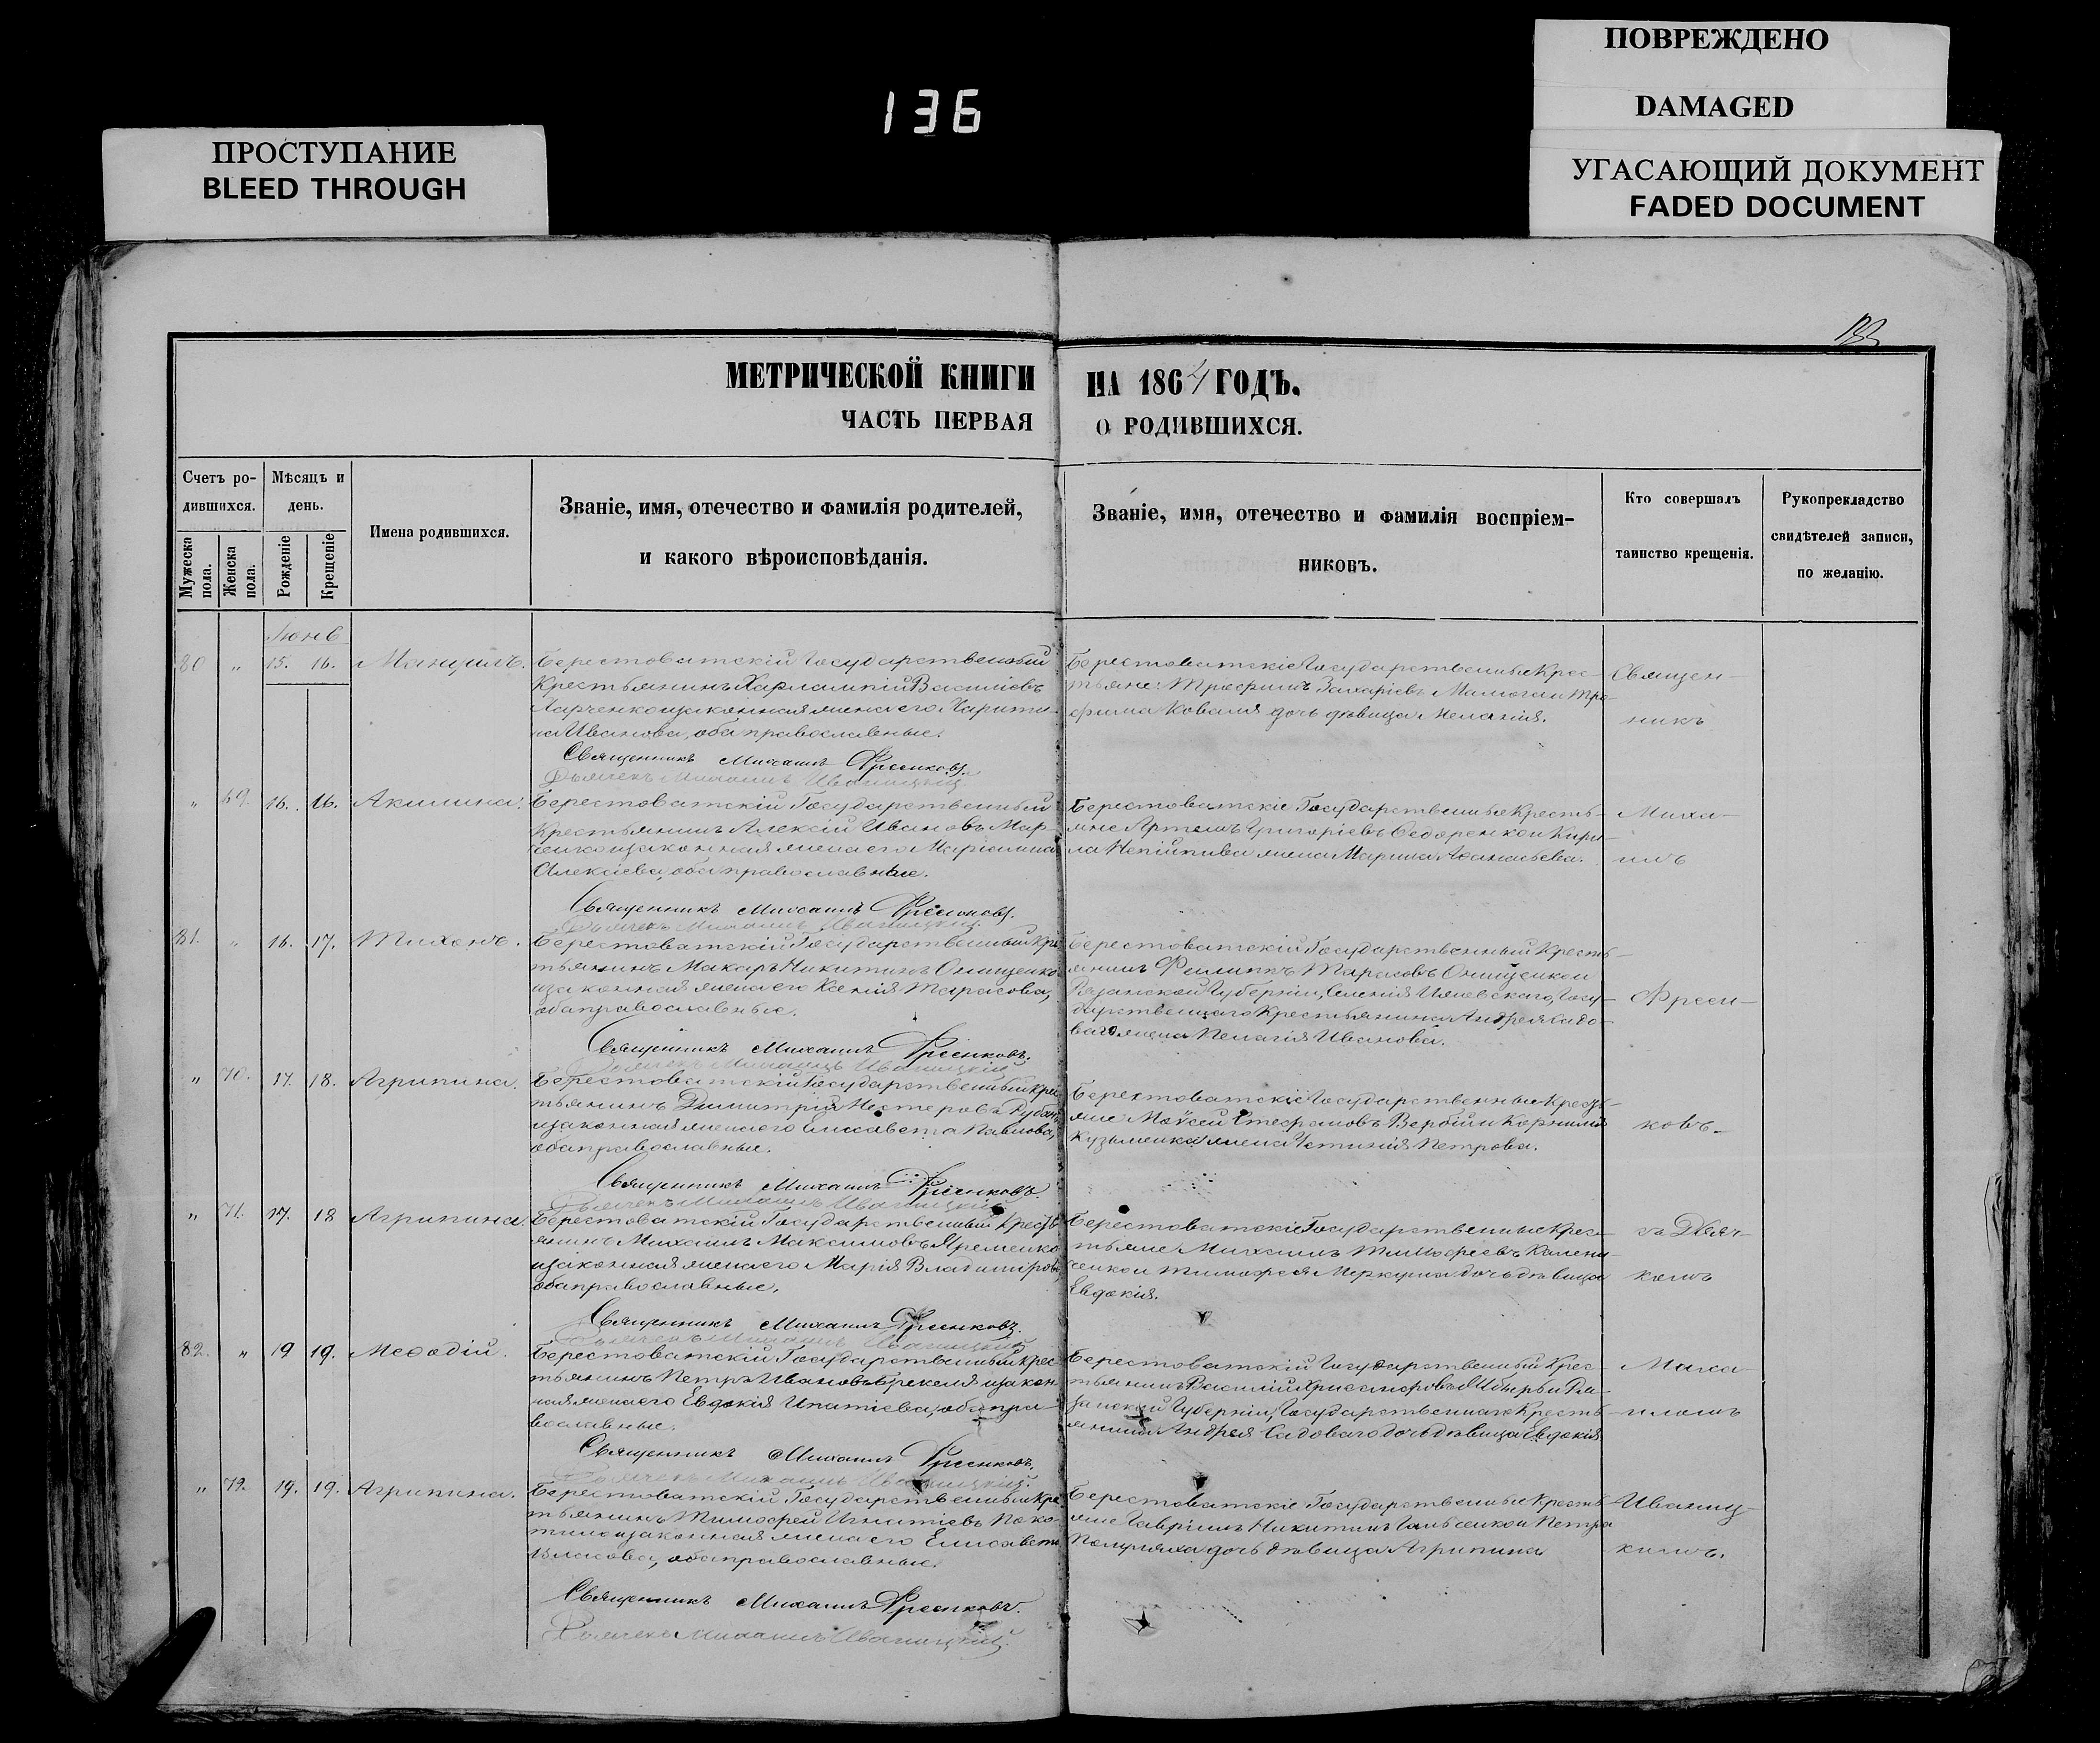 ПОВРЕЖДЕНО
DAMAGED
136
ПРОСТУПАНИЕ
BLEED THROUGH
УГАСАЮЩИЙ ДОКУМЕНТ
FADED DOCUMENT
МЕТРИЧЕСКОЙ КНИГИ НА 1864 ГОДЪ.
ЧАСТЬ ПЕРВАЯ О РОДИВШИХСЯ.
Счетъ ро-
дившихся.
Мужеска пола.
Женска пола.
Мѣсяцъ и
день.
Рожденіе
Крещеніе
Имена родившихся.
Званіе, имя, отечество и фамилія родителей,
и какого вѣроисповѣданія.
Званіе, имя, отечество и фамилія воспріем-
никовъ.
Кто совершалъ
таинство крещенія.
Рукоприкладство
свидѣтелей записи,
по желанію.
80 " 15. 16. Мануилъ.
Берестоватскій Государственный
Крестьянинъ Харлампій Василіевъ
Харченко и законная жена его Харити-
на Иванова, оба православные.
Священникъ Михаилъ
Дьячекъ Михаилъ Иваницкій
Берестоватскіе Государственные Крес-
тьяне: Трофимъ Захаріевъ и Тро-
фима Коваля дочь дѣвица Меланія.
Священ-
никъ
" 69. 16. 16. Акилина.
Берестоватскій Государственный
Крестьянинъ Алексій Ивановъ Мар-
ченко и законная жена его
Алексіева, оба православные.
Священникъ Михаилъ
Дьячекъ Михаилъ Иваницкій
Берестоватскіе Государственные Кресть-
яне Артемъ Григоріевъ Федоренко и Кири-
ла Непійпива жена Марина Афанасьева.
Миха-
илъ
81. " 16. 17. Тихонъ.
Берестоватскій Государственный Крес
тьянинъ Макаръ Никитинъ Онищенко
и законная жена его Ксенія Тарасова,
оба православные.
Священникъ Михаилъ
Дьячекъ Михаилъ Иваницкій
Берестоватскій Государственный Кресть-
янинъ Филиппъ Тарасовъ Онищенко и
Рязанской Губерніи, Селенія Госу-
дарственнаго Крестьянина Андрея Садо-
ваго жена Пелагія Иванова.
" 70. 17. 18. Агрипина.
Берестоватскій Государственный Крес
тьянинъ Димитрій Нестеровъ
и законная жена его Елисавета Павлова,
оба православные.
Священникъ Михаилъ
Дьячекъ Михаилъ Иваницкій
Берестоватскіе Государственные Кресть-
яне Моѵсей Стефановъ Вербій и Корнилія
Кузьменка жена Устинія Петрова.
ковъ
" 71. 17. 18 Агрипина.
Берестоватскій Государственный Кресть
янинъ Михаилъ Максимовъ Яременко
и законная жена его Марія Владимірова
оба православные.
Священникъ Михаилъ
Дьячекъ Михаилъ Иваницкій
Берестоватскіе Государственные Крес-
тьяне Михаилъ Тимофеевъ Калени-
ченко и Тимофея Меркуша дочь дѣвица
Евдокія.
съ Дьяч-
комъ
82. " 19 19. Меѳодій.
Берестоватскій Государственный Крес
тьянинъ Петръ Ивановъ и закон-
ная жена его Евдокія Ипатіева, оба пра-
вославные.
Священникъ Михаилъ
Дьячекъ Михаилъ Иваницкій
Берестоватскій Государственный Крес-
тьянинъ Василій Хрисанфовъ и Ря-
занской Губерніи, Государственнаго Кресть-
янина Андрея Садоваго дочь дѣвица Евдокія
Миха-
иломъ
" 72. 19. 19. Агрипина.
Берестоватскій Государственный Крес
тьянинъ Тимофей Игнатіевъ Поко-
тило и законная жена его Елисавета
Власова, оба православные.
Священникъ Михаилъ
Дьячекъ Михаилъ Иваницкій.
Берестоватскіе Государственные Кресть-
яне Гавріилъ Никитинъ Гальченко и Петра
дочь дѣвица Агрипина
Иваниц-
кимъ.